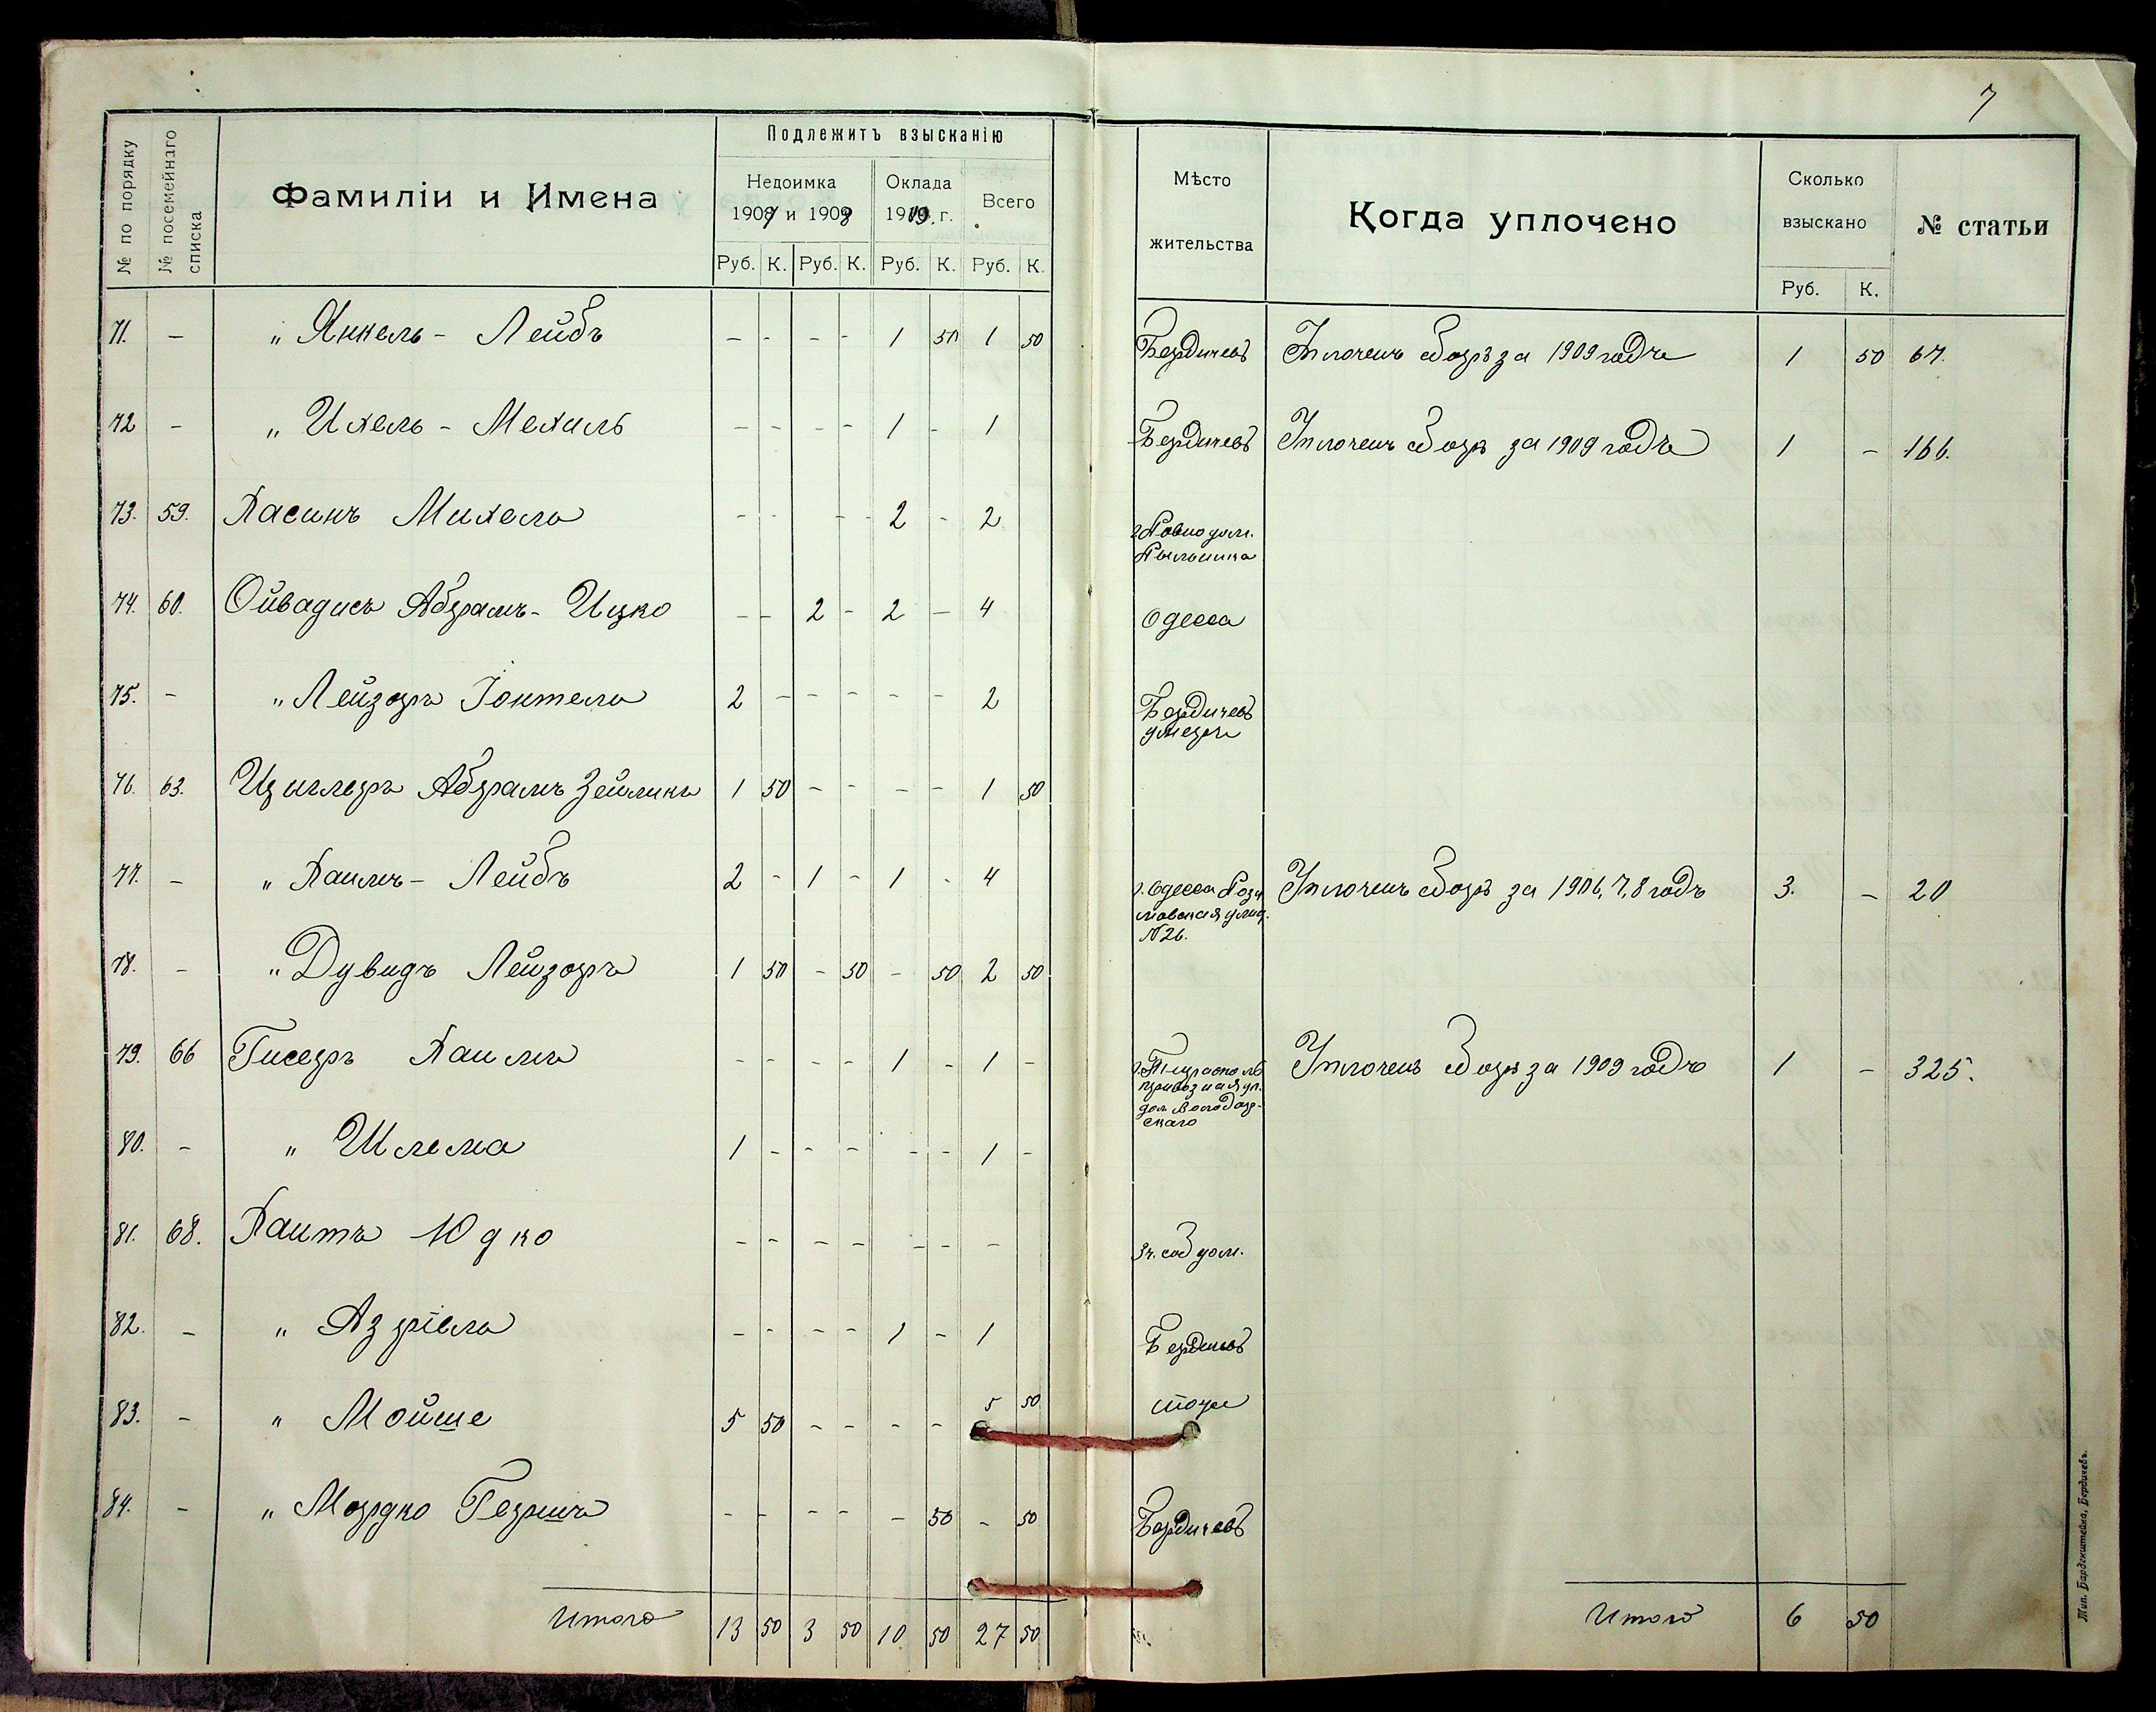 7
№ по порядку
№ посемейнаго списка
Фамиліи и Имена
Подлежитъ взысканію
Недоимка
1907 и 1908
Оклада
1909 г.
Всего
Руб. К. Руб. К. Руб. К. Руб. К.
Мѣсто
жительства
Когда уплочено
Сколько
взыскано
Руб. К.
№ статьи
71. - " Янкель - Лейбъ - - - - 1 50 1 50 Бердичевъ Уплоченъ сборъ за 1909 годъ 1 50 67.
72 - " Ихель - Мехаль - - - - 1 - 1 Бердичевъ Уплоченъ сборъ за 1909 годъ 1 - 166.
73. 59. Хасинъ Михель - - - - 2 - 2 г. Ровно дом.
74. 60. Ойвадисъ Абрамъ - Ицко - - 2 - 2 - 4 Одесса
75. - " Лейзоръ Іонтель 2 - - - - - 2 Бердичевъ
умеръ
76. 63. Циглеръ Абрамъ Зейликъ 1 50 - - - - 1 50
77. - " Хаимъ - Лейбъ 2 - 1 - 1 - 4 г. Одесса Уплоченъ сборъ за 1906, 7, 8 годъ 3. - 20
№ 26.
78. - " Дувидъ Лейзоръ 1 50 - 50 - 50 2 50
79. 66 Гисеръ Хаимъ - - - - 1 - 1 - г. Тирасполь Уплоченъ сборъ за 1909 годъ 1 - 325.
привозная ул.
дом Володар-
скаго
80. - " Шлема 1 - - - - - 1 -
81. 68. Хаитъ Юдко - - - - - - - Зч. соб дом.
82. - " Азріель - - - - 1 - 1 Бердичевъ
83. - " Мойше 5 50 - - - - 5 50 тоже
84. - " Мордко Гершъ - - - - - 50 - 50 Бердичевъ
Итого 13 50 3 50 10 50 27 50 Итого 6 50
Тип. Бардекштейна, Бердичевъ.